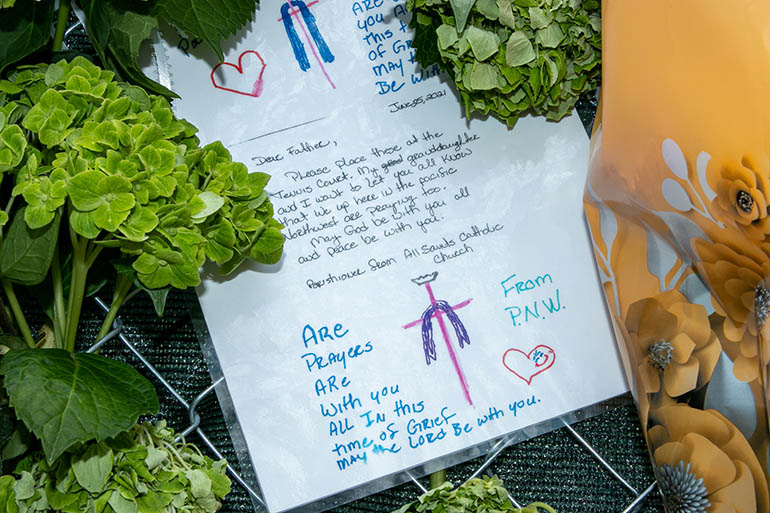 De
ARE
YOU A
this t
OF GR
MAY th
Be Wi
June 25, 2021
Dear Father,
Please place these at the
Tennis Court. My good granddaughter
and I want to let you all know
that we up here in the pacific
Northwest are praying too.
May God be with you all
and peace be with you.
Parishioner from All Saints Catholic
Church
From
P.N.W.
ARe
PRAyeRs
ARe
with you
ALL IN this
time of GRieF
MAY the LORD Be with you.